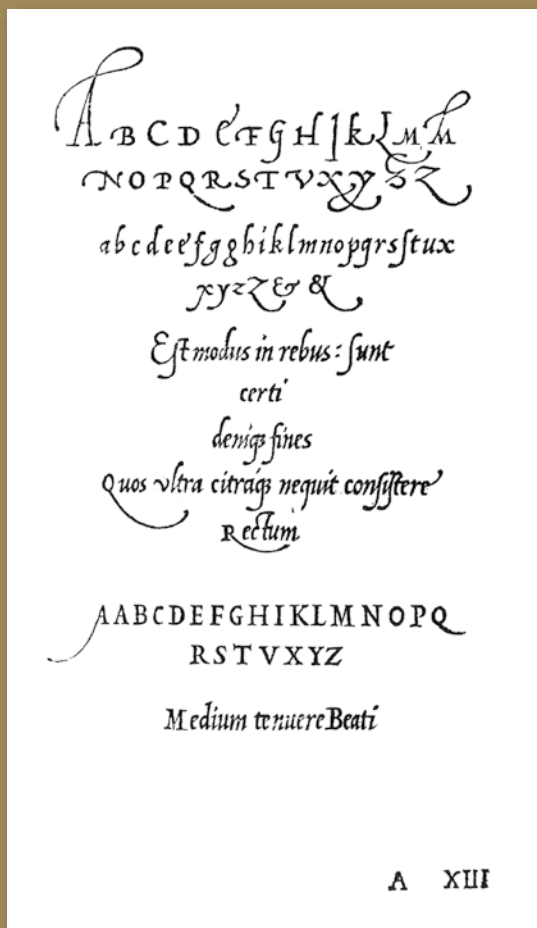 A B C D E F G H I K L M M
N O P Q R S T V X Y Z Z
a b c d e e f g g h i k l m n o p q r s ſ t u x
x y z Z & &
Eſt modus in rebus : ſunt
certi
deniqꝫ fines
Quos vltra citraqꝫ nequit conſiſtere
Rectum
AABCDEFGHIKLMNOPQ
RSTVXYZ
Medium tenuere Beati
A XIII